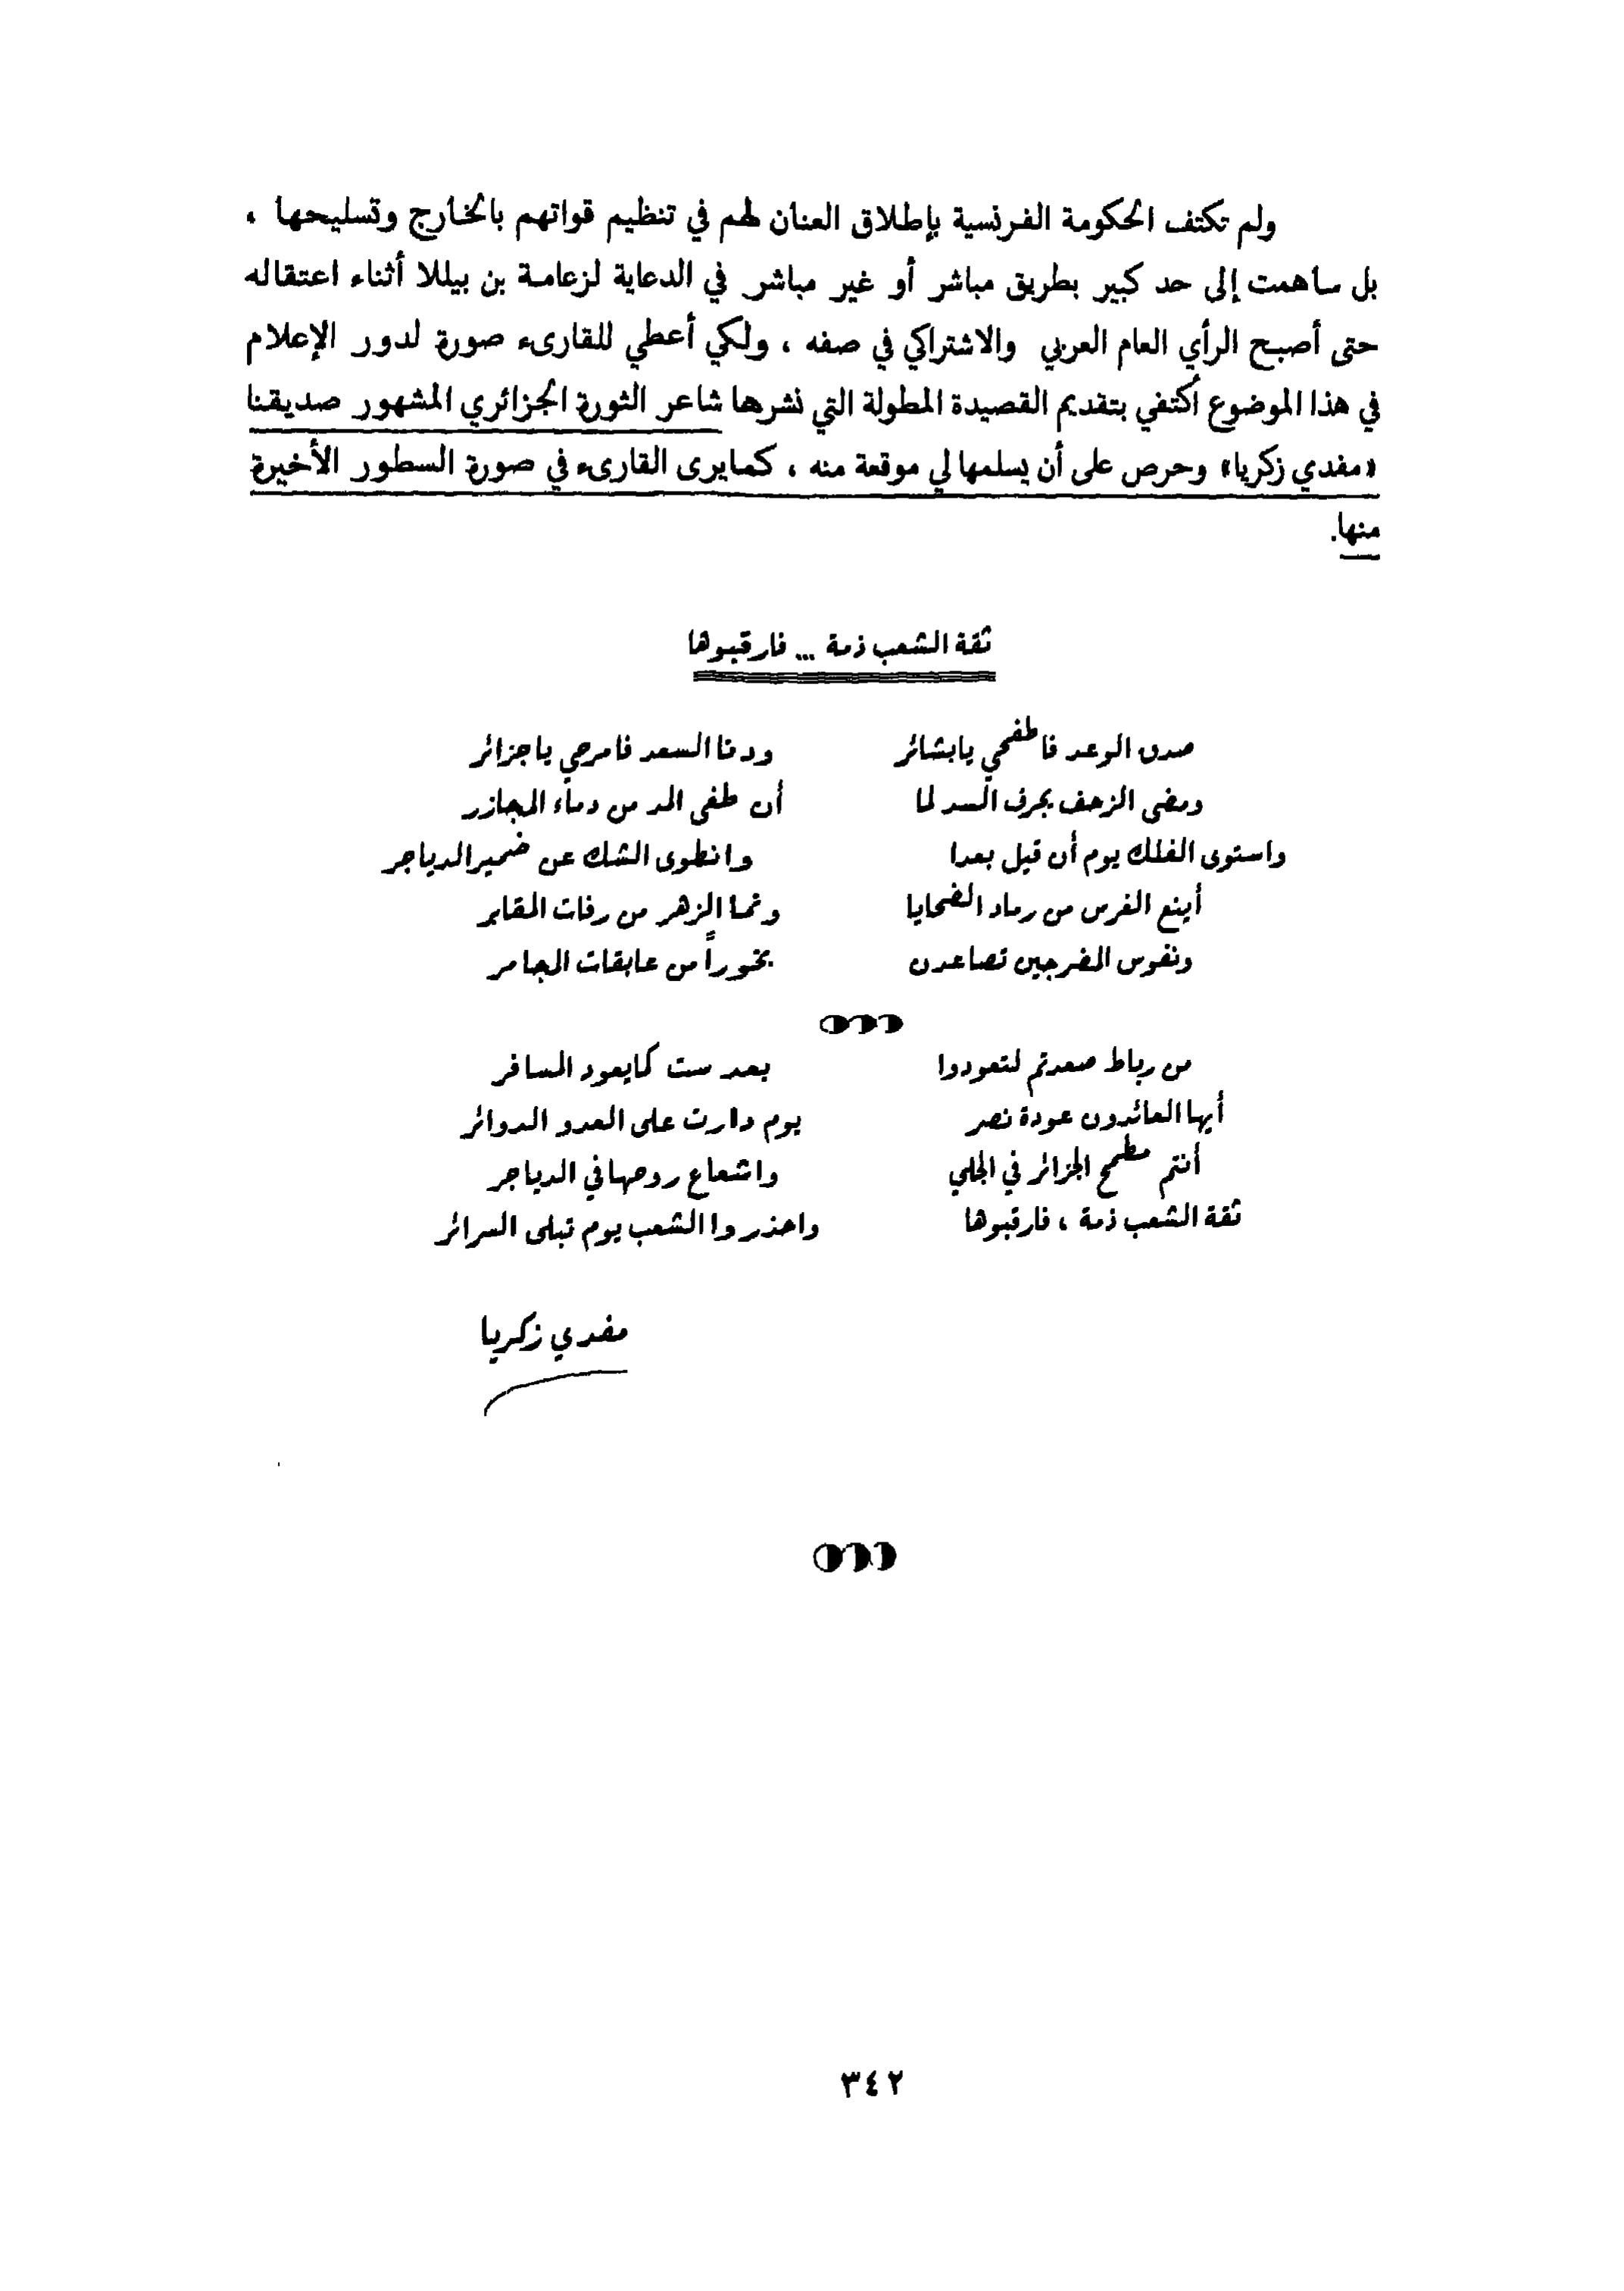 ولم تكتف الحكومة الفرنسية بإطلاق العنان لهم في تنظيم قواتهم بالخارج وتسليحها ،
بل ساهمت إلى حد كبير بطريق مباشر أو غير مباشر في الدعاية لزعامة بن بيللا أثناء اعتقاله
حتى أصبح الرأي العام العربي والاشتراكي في صفه ، ولكي أعطي للقارىء صورة لدور الإعلام
في هذا الموضوع أكتفي بتقديم القصيدة المطولة التي نشرها شاعر الثورة الجزائري المشهور صديقنا
«مفدي زكريا» وحرص على أن يسلمها لي موقعة منه ، كما يرى القارىء في صورة السطور الأخيرة
منها.
ثقة الشعب ذمة ... فارقبوها
صدق الوعد فاطفحي يا بشائر ودنا السعد فامرحي يا جزائر
ومضى الزحف يجرف السد لما أن طغى المد من دماء المجازر
واستوى الفلك يوم أن قيل بعدا وانطوى الشك عن ضمير الدياجر
أينع الغرس من رماد الضحايا ونما الزهر من رفات المقابر
ونفوس المضرجين تصاعدن بخوراً من عابقات المجامر
من رباط صعدتم لتعودوا بعد ست كما يعود المسافر
أيها العائدون عودة نصر يوم دارت على العدو الدوائر
أنتم مطمح الجزائر في الجلي واشعاع روحها في الدياجر
ثقة الشعب ذمة ، فارقبوها واحذروا الشعب يوم تبلى السرائر
مفدي زكريا
٣٤٢